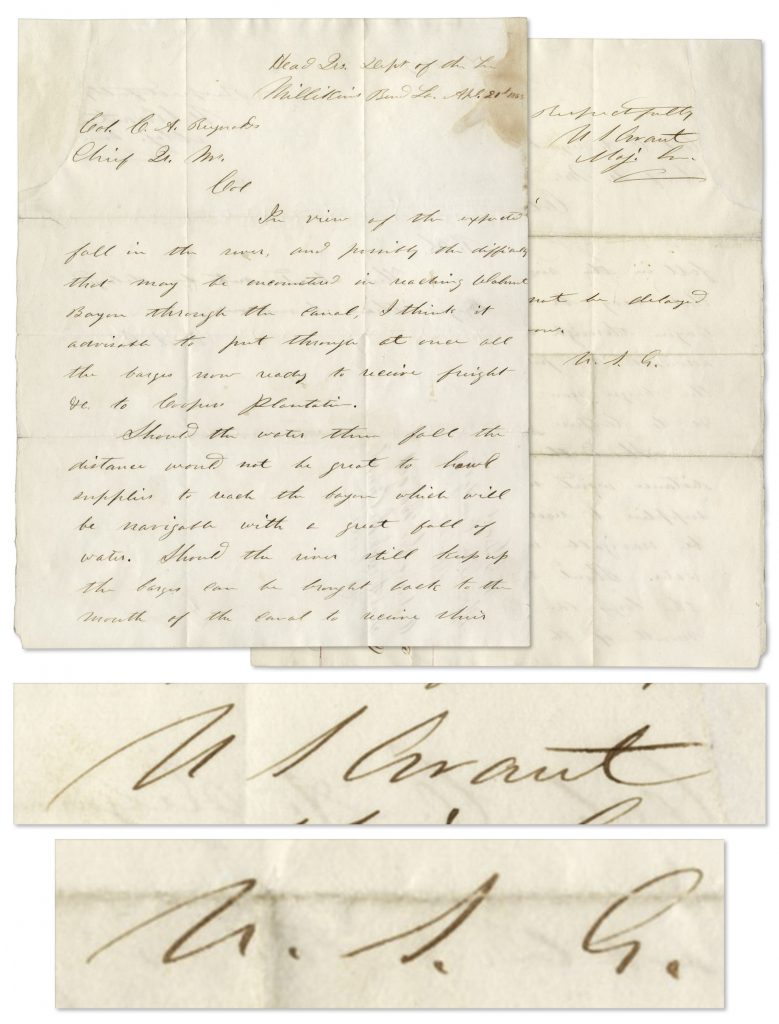 Head Qrs. Dept of the Ten
Millikins Bend La. Apl. 21st 1863
Col. C. A. Reynolds
Chief Qr. Mr.
Col
In view of the expected
fall in the river, and possibly the difficulty
that may be encountered in reaching Walnut
Bayou through the canal, I think it
advisable to put through at once all
the barges now ready to receive freight
&c. to Coopers Plantation.
Should the water then fall the
distance would not be great to hawl
supplies to reach the bayou which will
be navigable with a great fall of
water. Should the river still keep up
the barges can be brought back to the
mouth of the canal to receive their
Respectfully
U S Grant
Maj. Gn.
not be delayed
U. S. G.
U S Grant
U. S. G.